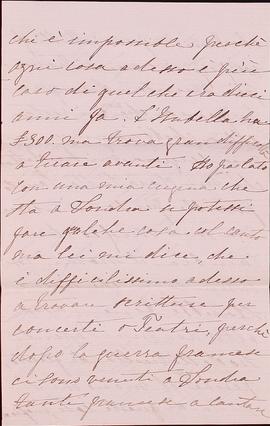 chi è impossibile perchè
ogni cosa adesso è più
caro di quel che era dieci
anni fa. L'Isabella ha
£300. ma trova gran difficol
a tirare avanti. Ho parlato
con una mia cugina che
sta a Londra se potessi
fare qualche cosa col canto
ma lei mi dice, che
è difficilissimo adesso
a trovare scritture per
concerti o Teatri, perchè
dopo la guerra francese
ci sono venuti a Londra
tante francese a cantar